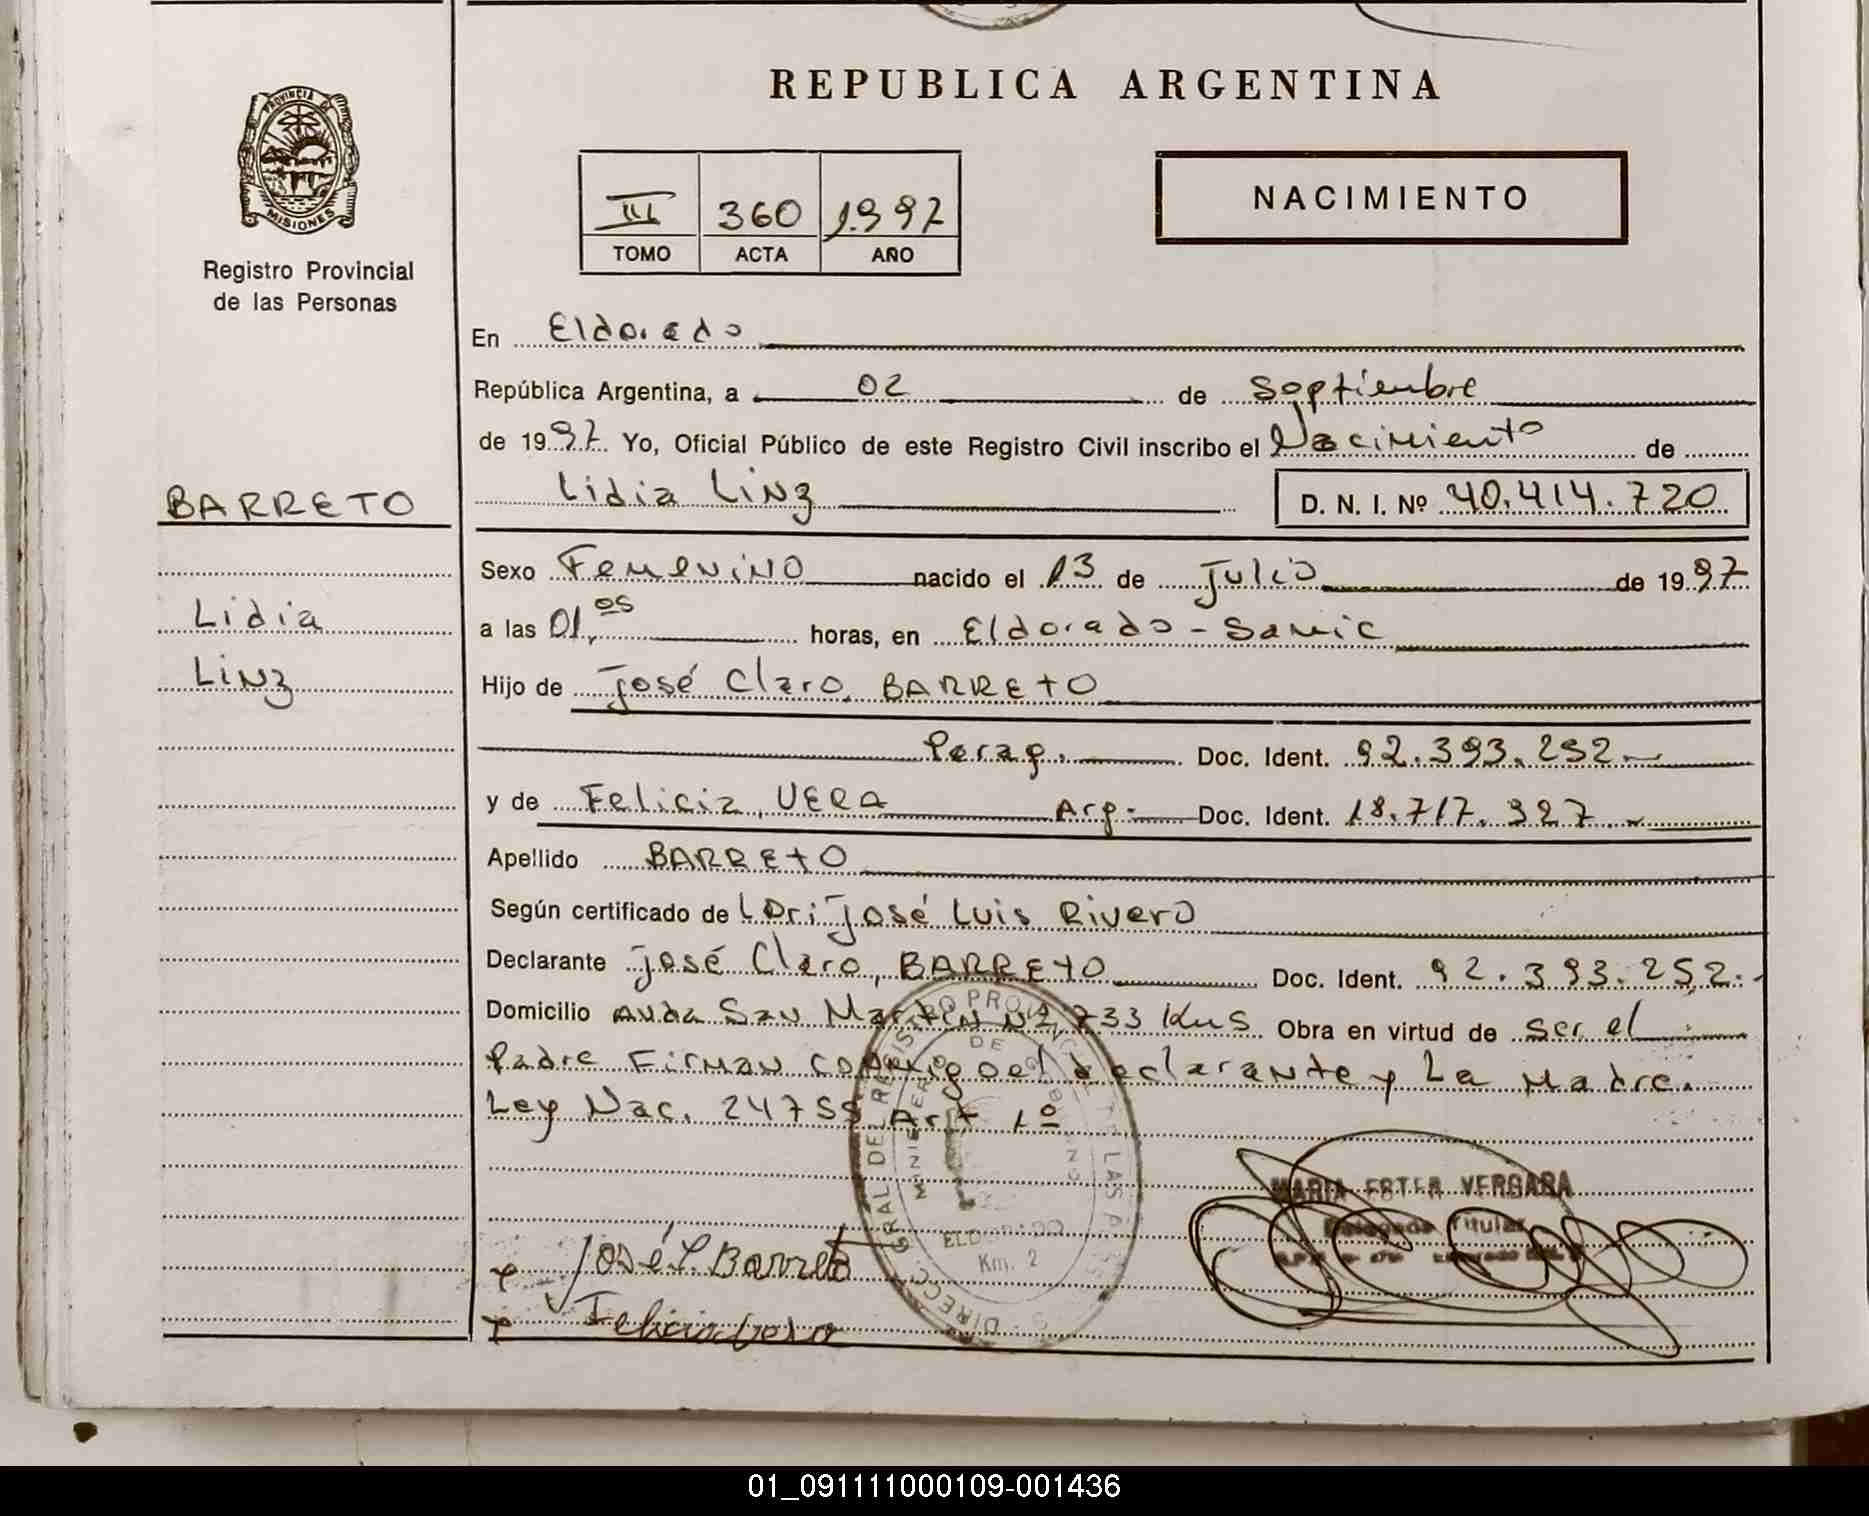 REPUBLICA ARGENTINA
PROVINCIA DE
MISIONES
Registro Provincial
de las Personas
III 360 1997
TOMO ACTA AÑO
NACIMIENTO
En Eldorado
República Argentina, a 02 de Septiembre
de 1997. Yo, Oficial Público de este Registro Civil inscribo el Nacimiento de
BARRETO
Lidia Linz D. N. I. Nº 40.414.720
Sexo Femenino nacido el 13 de Julio de 1997
Lidia
a las 01,05 horas, en Eldorado - Samic
Linz
Hijo de José Claro, BARRETO
Parag. Doc. Ident. 92.393.252.-
y de Felicia, VERA Arg. Doc. Ident. 18.717.927.-
Apellido BARRETO
Según certificado de José Luis Rivero
Declarante José Claro, BARRETO Doc. Ident. 92.393.252.-
Domicilio Avda San Martin Nº 733 Km8 Obra en virtud de ser el
Padre Firman conmigo el declarante y La Madre.
Ley Nac. 24755 Art 1º
MARIA ESTER VERGARA
Delegada Titular
José C. Barreto
Felicia Vera
ELDORADO
Km. 2
01_091111000109-001436